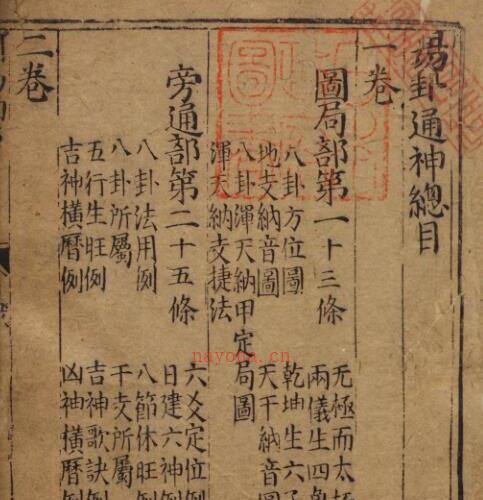 易卦通神總目
一卷
圖局部第一十三條
无極而太
兩儀生四象
八卦方位圖
乾坤生六子
地支納音圖
天干納音圖
八卦渾天納甲定局圖
渾天納支捷法
旁通部第二十五條
六爻定位例
日建六神例
八卦法用例
八節休旺
八卦所屬
干支所屬
五行生旺例
吉神歌訣例
吉神橫曆例
凶神橫曆例
二卷
nayona.cn